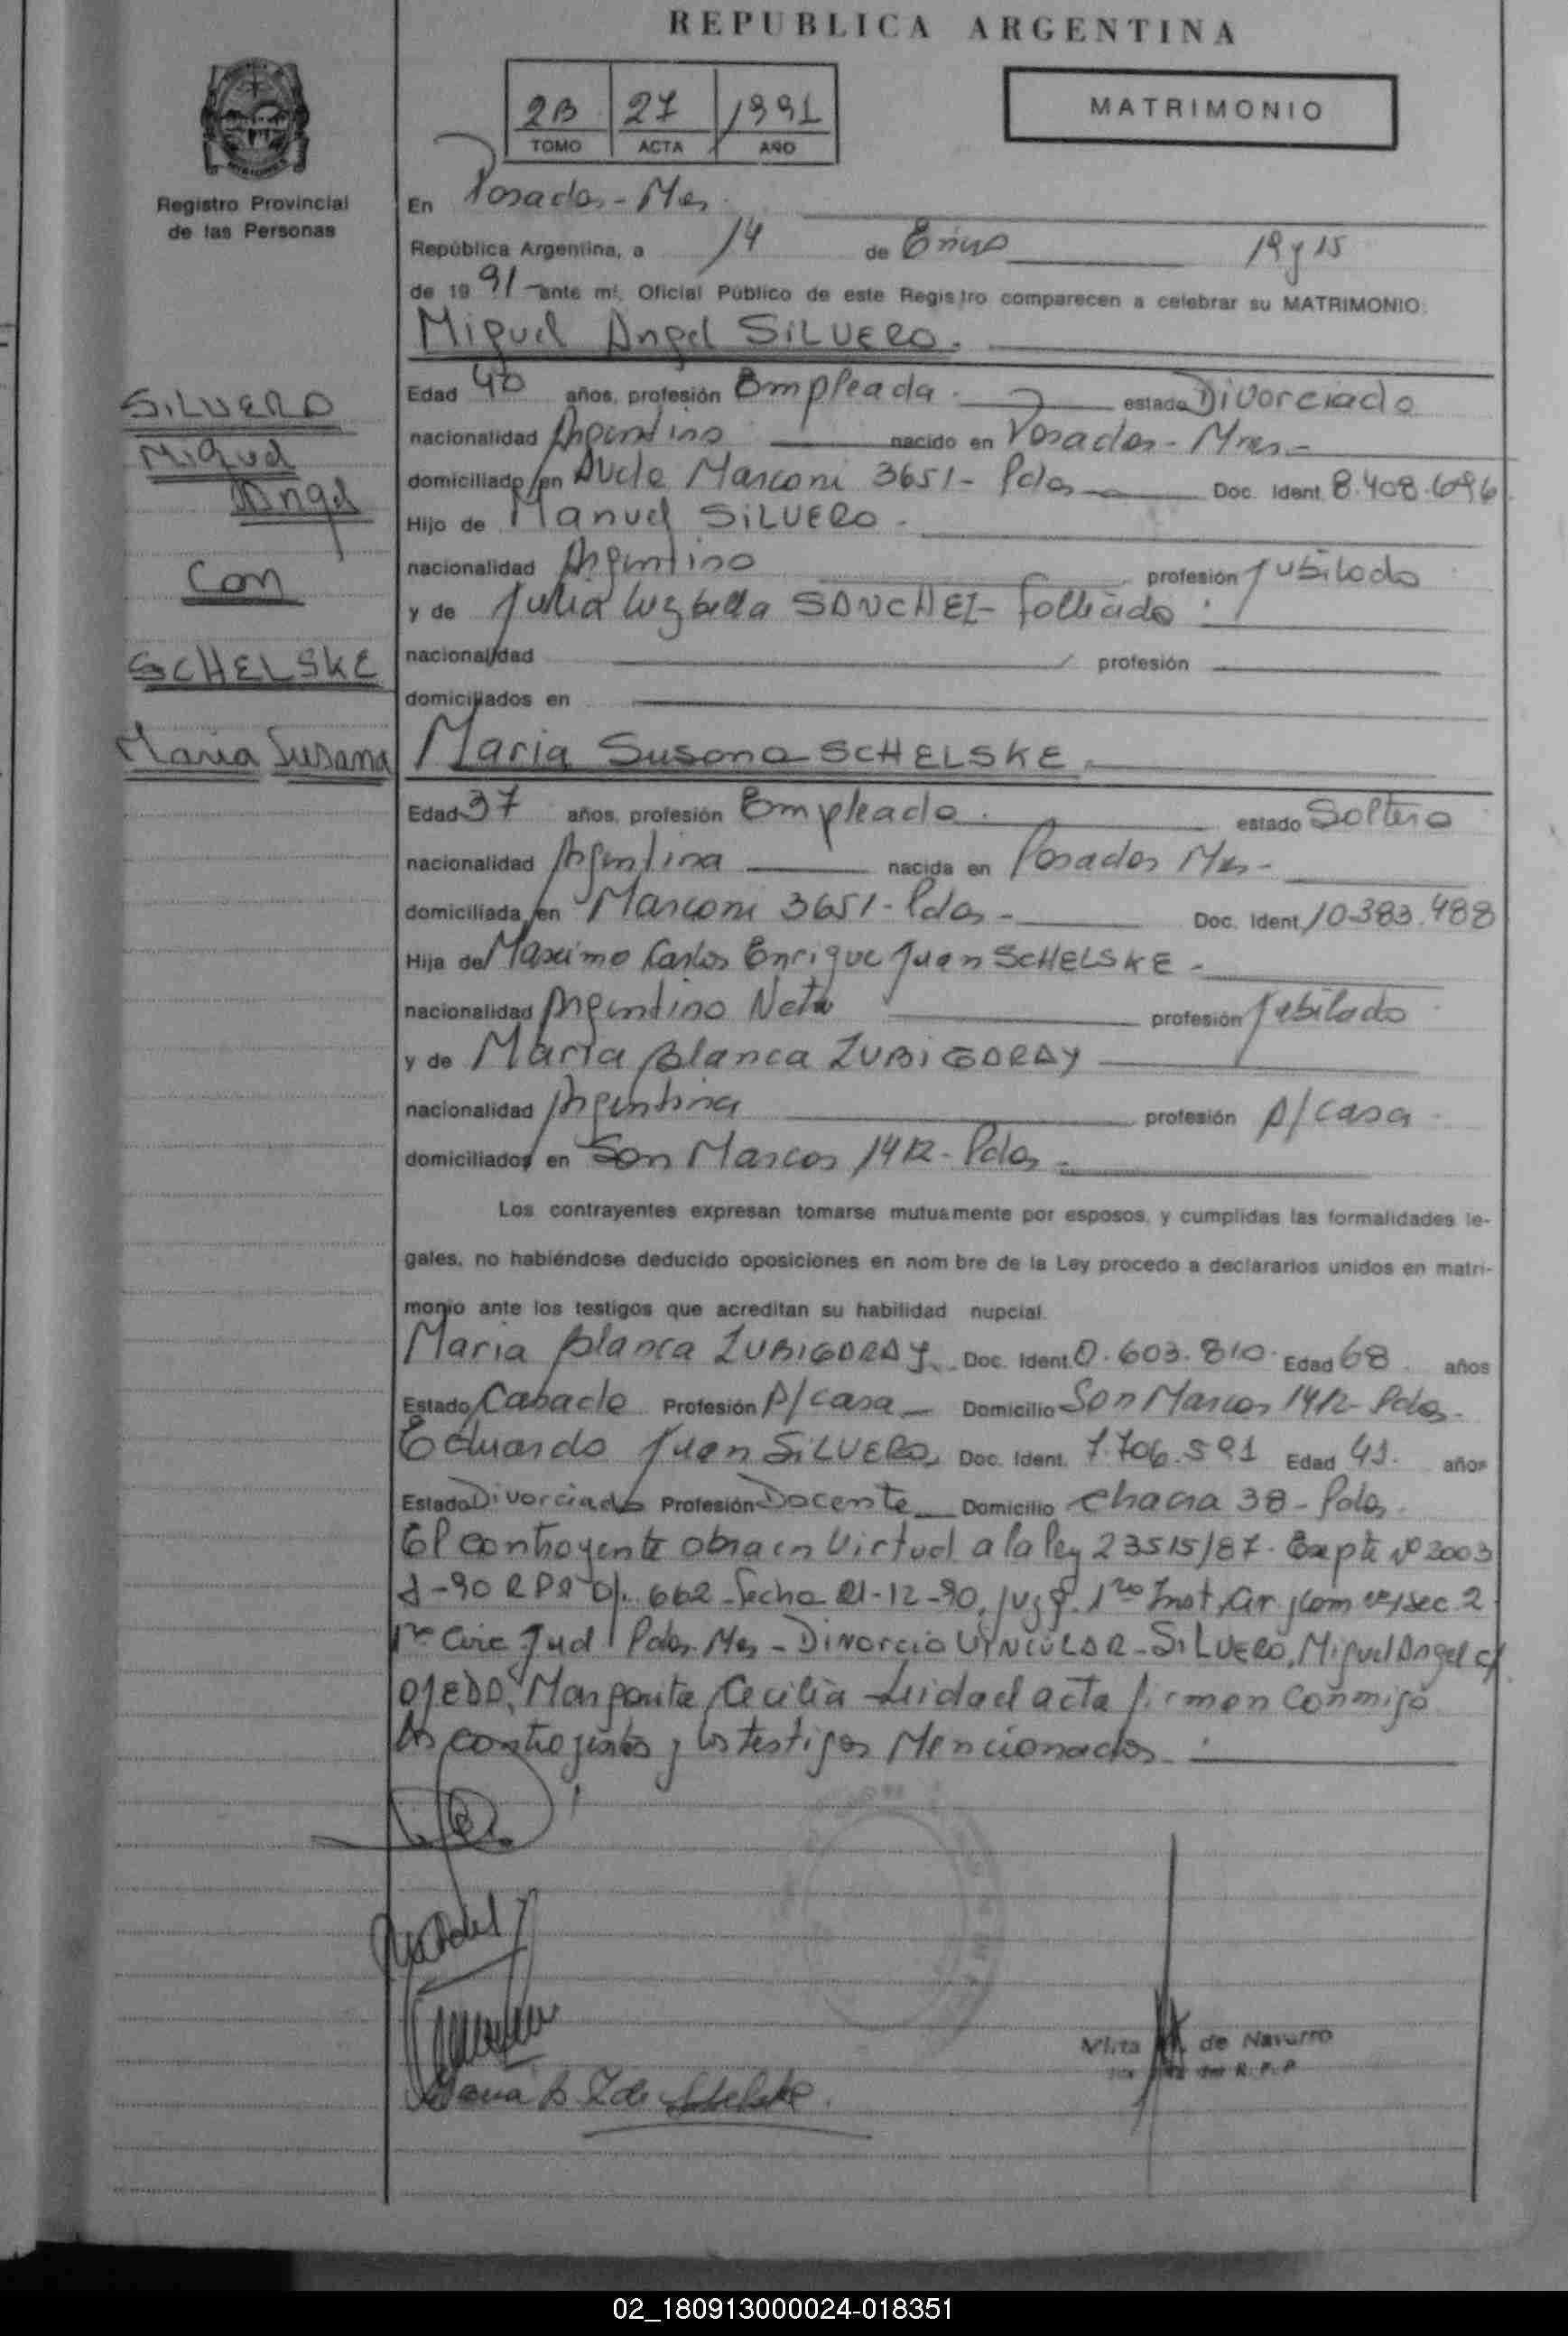 REPUBLICA ARGENTINA
MATRIMONIO
2B 27 1991
TOMO ACTA AÑO
Registro Provincial
de las Personas
En Posadas - Mnes
República Argentina, a 14 de Enero 19 y 15
de 19 91 ante mí, Oficial Público de este Registro comparecen a celebrar su MATRIMONIO:
Miguel Angel SILVERO.
Edad 40 años, profesión Empleada. estado Divorciado
nacionalidad Argentino nacido en Posadas - Mnes -
domiciliado en Avda Marconi 3651 - Pdas Doc. Ident. 8.408.696
Hijo de Manuel SILVERO.
nacionalidad Argentino profesión Jubilado
y de Julia Luzbella SANCHEZ - Fallecida
nacionalidad profesión
domiciliados en
SILVERO
Miguel
Angel
Con
SCHELSKE
Maria Susana
Maria Susana SCHELSKE
Edad 37 años, profesión Empleada. estado Soltera
nacionalidad Argentina nacida en Posadas Mnes -
domiciliada en Marconi 3651 - Pdas - Doc. Ident. 10.383.488
Hija de Maximo Carlos Enrique Juan SCHELSKE -
nacionalidad Argentino Nato profesión Jubilado
y de Maria Blanca ZUBIGARAY
nacionalidad Argentina profesión A/casa
domiciliados en San Marcos 1412 - Pdas -
Los contrayentes expresan tomarse mutuamente por esposos, y cumplidas las formalidades le-
gales, no habiéndose deducido oposiciones en nom bre de la Ley procedo a declararlos unidos en matri-
monio ante los testigos que acreditan su habilidad nupcial.
Maria Blanca ZUBIGARAY. Doc. Ident. 0.603.810. Edad 68. años
Estado Casada Profesión A/casa Domicilio San Marcos 1412 - Pdas -
Eduardo Juan SILVERO. Doc. Ident. 7.706.591 Edad 41. años
Estado Divorciado Profesión Docente Domicilio Chacra 38 - Pdas.
El contrayente obra en Virtud a la ley 23515/87. Expte Nº 2003
-90 RPP Of. 662 - fecha 21-12-90, Juzg. 1ra Inst, Civ y Com sec. 2
1ra Circ Jud Pdas. Mnes - DIVORCIO VINCULAR - SILVERO, Miguel Angel c/
OJEDA, Margarita Cecilia - Leida el acta firman conmigo
los contrayentes y los testigos Mencionados.
Maria B Z de Schelske.
Mirta de Navarro
R. P. P
02_180913000024-018351